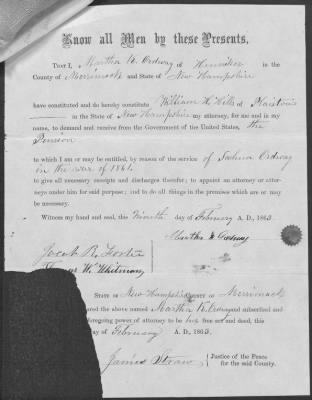 Know all Men by these Presents,
That I, Martha K. Ordway of Henniker in the
County of Merrimack and State of New Hampshire
have constituted and do hereby constitute William H. Hills of Plaistow
in the State of New Hampshire my attorney, for me and in my
name, to demand and receive from the Government of the United States, the
Pension
to which I am or may be entitled, by reason of the service of Joshua Ordway
in the war of 1861.
to give all necessary receipts and discharges therefor; to appoint an attorney or attor-
neys under him for said purpose; and to do all things in the premises which are or may
be necessary.
Witness my hand and seal, this Ninth day of February A. D., 1863.
Martha K Ordway
Jacob R. Foster
W. Whitman
State of New Hampshire County of Merrimack
the above named Martha K Ordway and subscribed and
foregoing power of attorney to be her free act and deed, this
day of February A. D. 1863.
James Straw Justice of the Peace
for the said County.